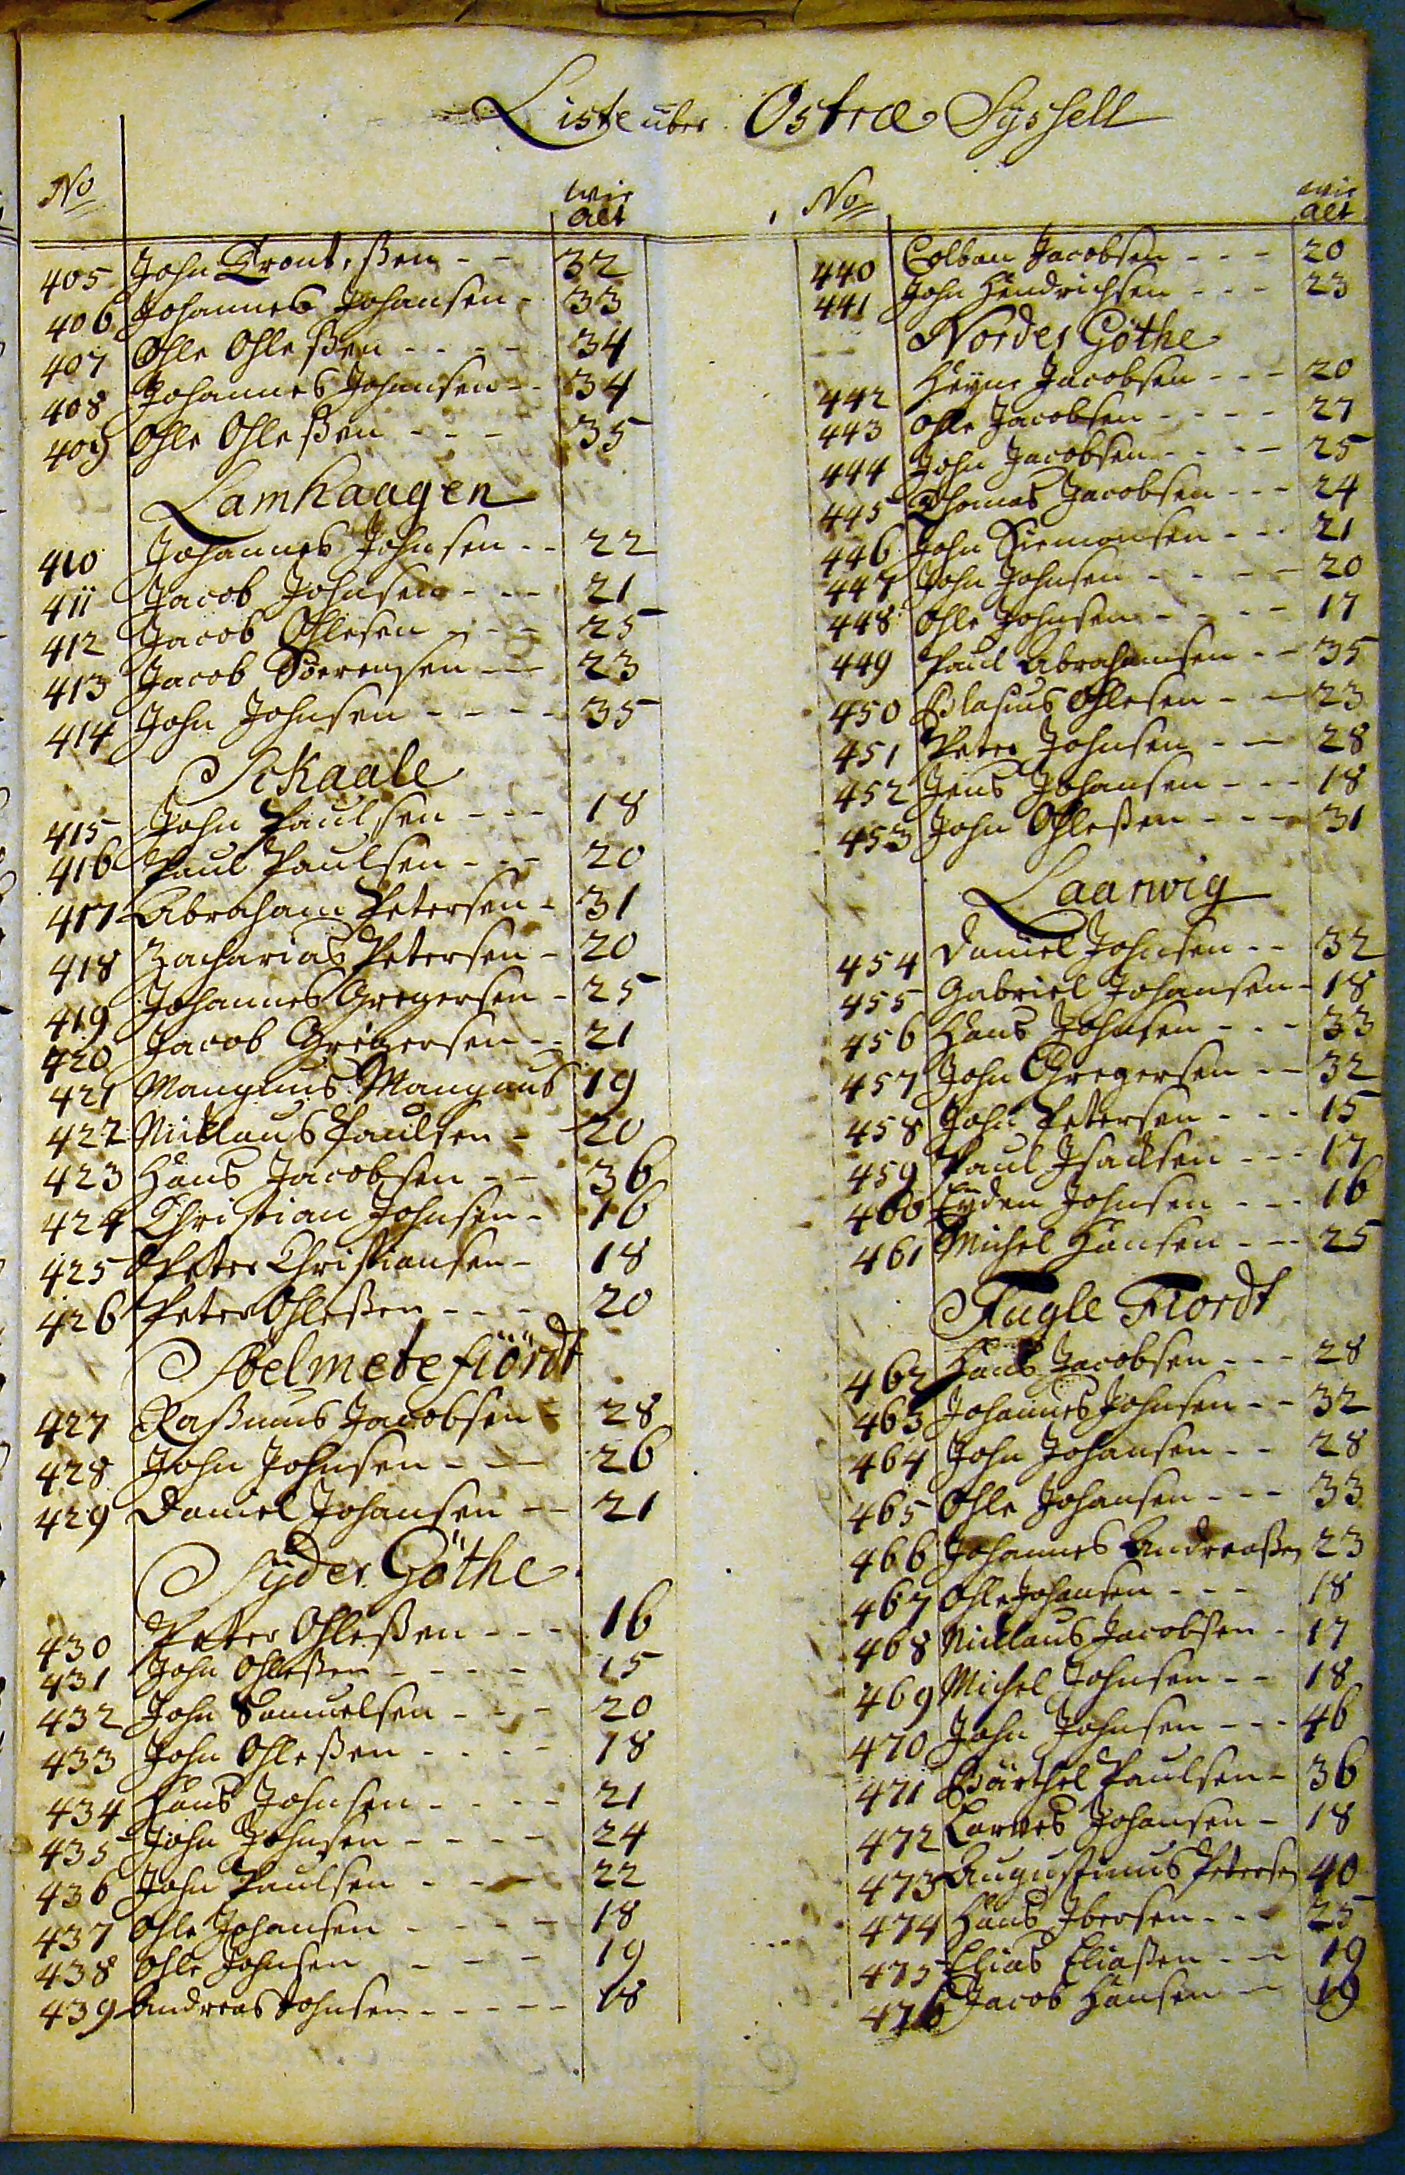 Liste uber Ostræ Sÿssell
No wie alt
405 John Tront,ßen - - 32
406 Johannes Johansen - 33
407 Ohle Ohleßen - - - - 34
408 Johannes Johansen - - 34
409 Ohle Ohleßen - - - 35
Lamhaugen
410 Johannes Johnsen - - 22
411 Jacob Johnsen - - - 21
412 Jacob Ohlesen - - - 25
413 Jacob Sörensen - - 23
414 John Johnsen - - - - 35
Skaale
415 John Paulsen - - - 18
416 Paul Paulsen - - - 20
417 Abraham Petersen - 31
418 Zacharias Petersen - 20
419 Johannes Gregersen - 25
420 Jacob Gregersen - - 21
421 Mangnus Mangnus 19
422 Nicklaus Paulsen - 20
423 Hans Jacobsen - - 36
424 Christian Johnsen - 16
425 Peter Christiansen - 18
426 Peter Ohleßen - - - - 20
Söelmetefiördt
427 Raßmus Jacobsen - 28
428 John Johnsen - - - 26
429 Daniel Johansen - - 21
Sÿder Göthe
430 Peter Ohleßen - - - 16
431 John Ohleßen - - - - 15
432 John Samuelsen - - - 20
433 John Ohleßen - - - - 18
434 Hans Johnsen - - - - 21
435 John Johnsen - - - - 24
436 John Paulsen - - - - 22
437 Ohle Johansen - - - - 18
438 Ohle Johnsen - - - - 19
439 Andreas Johnsen - - - - - 18
No wie alt
440 Colban Jacobsen - - - 20
441 John Hendrichsen - - - 23
Norder Göthe
442 Heyne Jacobsen - - - 20
443 Ohle Jacobsen - - - - 27
444 John Jacobsen - - - - 25
445 Thomas Jacobsen - - - 24
446 John Siemonsen - - - 21
447 John Johnsen - - - - - 20
448 Ohle Johnsen - - - - - 17
449 Paul Abrahamsen - - 35
450 Blasius Ohlesen - - 23
451 Peter Johnsen - - 28
452 Jens Johansen - - - 18
453 John Ohleßen - - - - 31
Laarwig
454 Daniel Johnsen - - 32
455 Gabriel Johansen - 18
456 Hans Johnsen - - - 33
457 John Gregersen - - 32
458 John Petersen - - - 15
459 Paul Isacksen - - - 17
460 Eyden Johnsen - - - 16
461 Michel Hansen - - - 25
Fugle Fiordt
462 Hans Jacobsen - - - 28
463 Johannes Johnsen - - 32
464 John Johansen - - 28
465 Ohle Johansen - - - 33
466 Johannes Andreaßen 23
467 Ohle Johansen - - - 18
468 Nicklaus Jacobsen - 17
469 Michel Johnsen - - 18
470 John Johnsen - - - 46
471 Bärthel Paulsen - 36
472 Johansen - 18
473 Augustinus Petersen 40
474 Hans Ibersen - - - 25
475 Elias Eliaßen - - 19
476 Jacob Hansen - 19